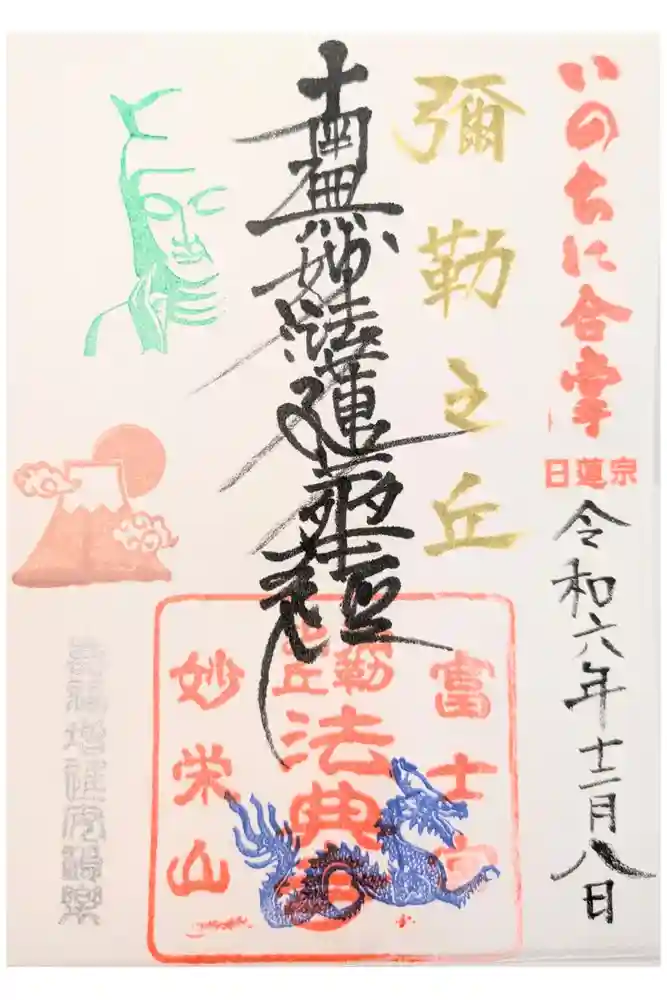 いのちに合掌
日蓮宗
令和六年十二月八日
彌勒之丘
南無妙法蓮華經
富士宮
法典寺
妙栄山